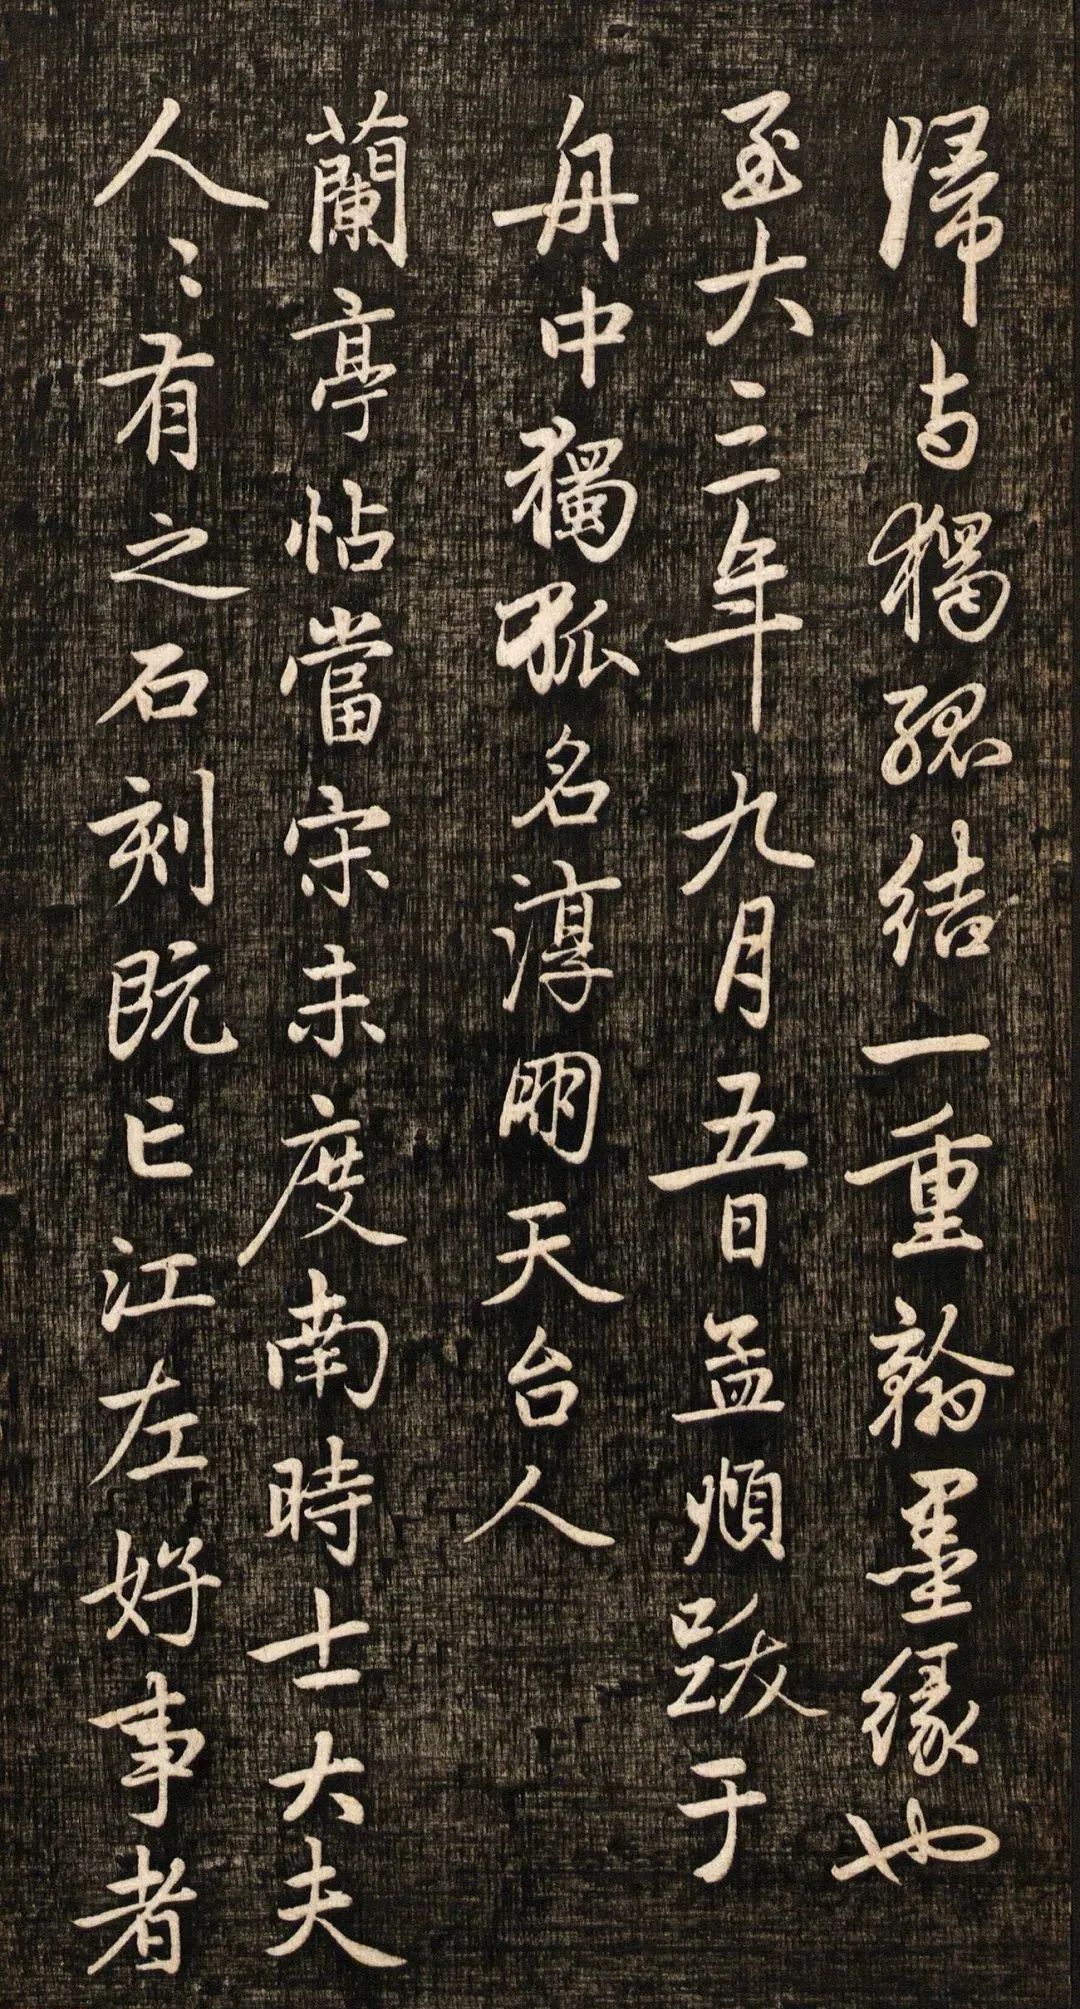 歸与獨孤結一重翰墨緣也
至大三年九月五日孟頫跋于
舟中獨孤名淳朙天台人
蘭亭帖當宋未度南時士大夫
人〻有之石刻既亡江左好事者